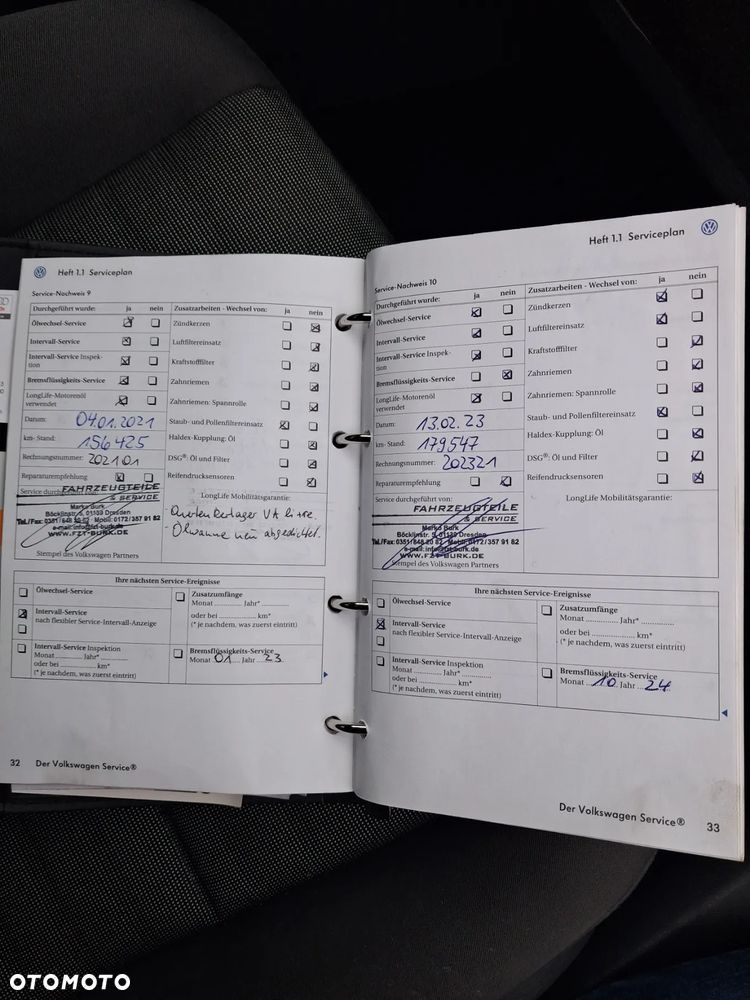 Heft 1.1 Serviceplan
Service-Nachweis 9
Durchgeführt wurde: ja nein
Ölwechsel-Service
Intervall-Service
Intervall-Service Inspek-
tion
Bremsflüssigkeits-Service
LongLife-Motorenöl
verwendet
Datum: 04.01.2021
km-Stand: 156425
Rechnungsnummer: 202101
Reparaturempfehlung
Service durchgeführt von:
FAHRZEUGTEILE
& SERVICE
Marko Burk
Böcklinstr. 5, 01139 Dresden
Tel./Fax: 0351/848 20 82 Mobil: 0172/357 91 82
e-mail: info@fzt-burk.de
WWW.FZT-BURK.DE
Stempel des Volkswagen Partners
Zusatzarbeiten - Wechsel von: ja nein
Zündkerzen
Luftfiltereinsatz
Kraftstofffilter
Zahnriemen
Zahnriemen: Spannrolle
Staub- und Pollenfiltereinsatz
Haldex-Kupplung: Öl
DSG®: Öl und Filter
Reifendrucksensoren
LongLife Mobilitätsgarantie:
- Querlenkerlager VA
- Ölwanne neu abgedichtet.
Ihre nächsten Service-Ereignisse
Ölwechsel-Service
Intervall-Service
nach flexibler Service-Intervall-Anzeige
Intervall-Service Inspektion
Monat ............ Jahr* ............
oder bei ............ km*
(* je nachdem, was zuerst eintritt)
Zusatzumfänge
Monat ............ Jahr* ............
oder bei ............ km*
(* je nachdem, was zuerst eintritt)
Bremsflüssigkeits-Service
Monat 01 Jahr 23
32 Der Volkswagen Service®
Heft 1.1 Serviceplan
Service-Nachweis 10
Durchgeführt wurde: ja nein
Ölwechsel-Service
Intervall-Service
Intervall-Service Inspek-
tion
Bremsflüssigkeits-Service
LongLife-Motorenöl
verwendet
Datum: 13.02.23
km-Stand: 179547
Rechnungsnummer: 202321
Reparaturempfehlung
Service durchgeführt von:
FAHRZEUGTEILE
& SERVICE
Marko Burk
Böcklinstr. 5, 01139 Dresden
Tel./Fax: 0351/848 20 82 Mobil: 0172/357 91 82
e-mail: info@fzt-burk.de
WWW.FZT-BURK.DE
Stempel des Volkswagen Partners
Zusatzarbeiten - Wechsel von: ja nein
Zündkerzen
Luftfiltereinsatz
Kraftstofffilter
Zahnriemen
Zahnriemen: Spannrolle
Staub- und Pollenfiltereinsatz
Haldex-Kupplung: Öl
DSG®: Öl und Filter
Reifendrucksensoren
LongLife Mobilitätsgarantie:
Ihre nächsten Service-Ereignisse
Ölwechsel-Service
Intervall-Service
nach flexibler Service-Intervall-Anzeige
Intervall-Service Inspektion
Monat ............ Jahr* ............
oder bei ............ km*
(* je nachdem, was zuerst eintritt)
Zusatzumfänge
Monat ............ Jahr* ............
oder bei ............ km*
(* je nachdem, was zuerst eintritt)
Bremsflüssigkeits-Service
Monat 10 Jahr 24
Der Volkswagen Service® 33
OTOMOTO